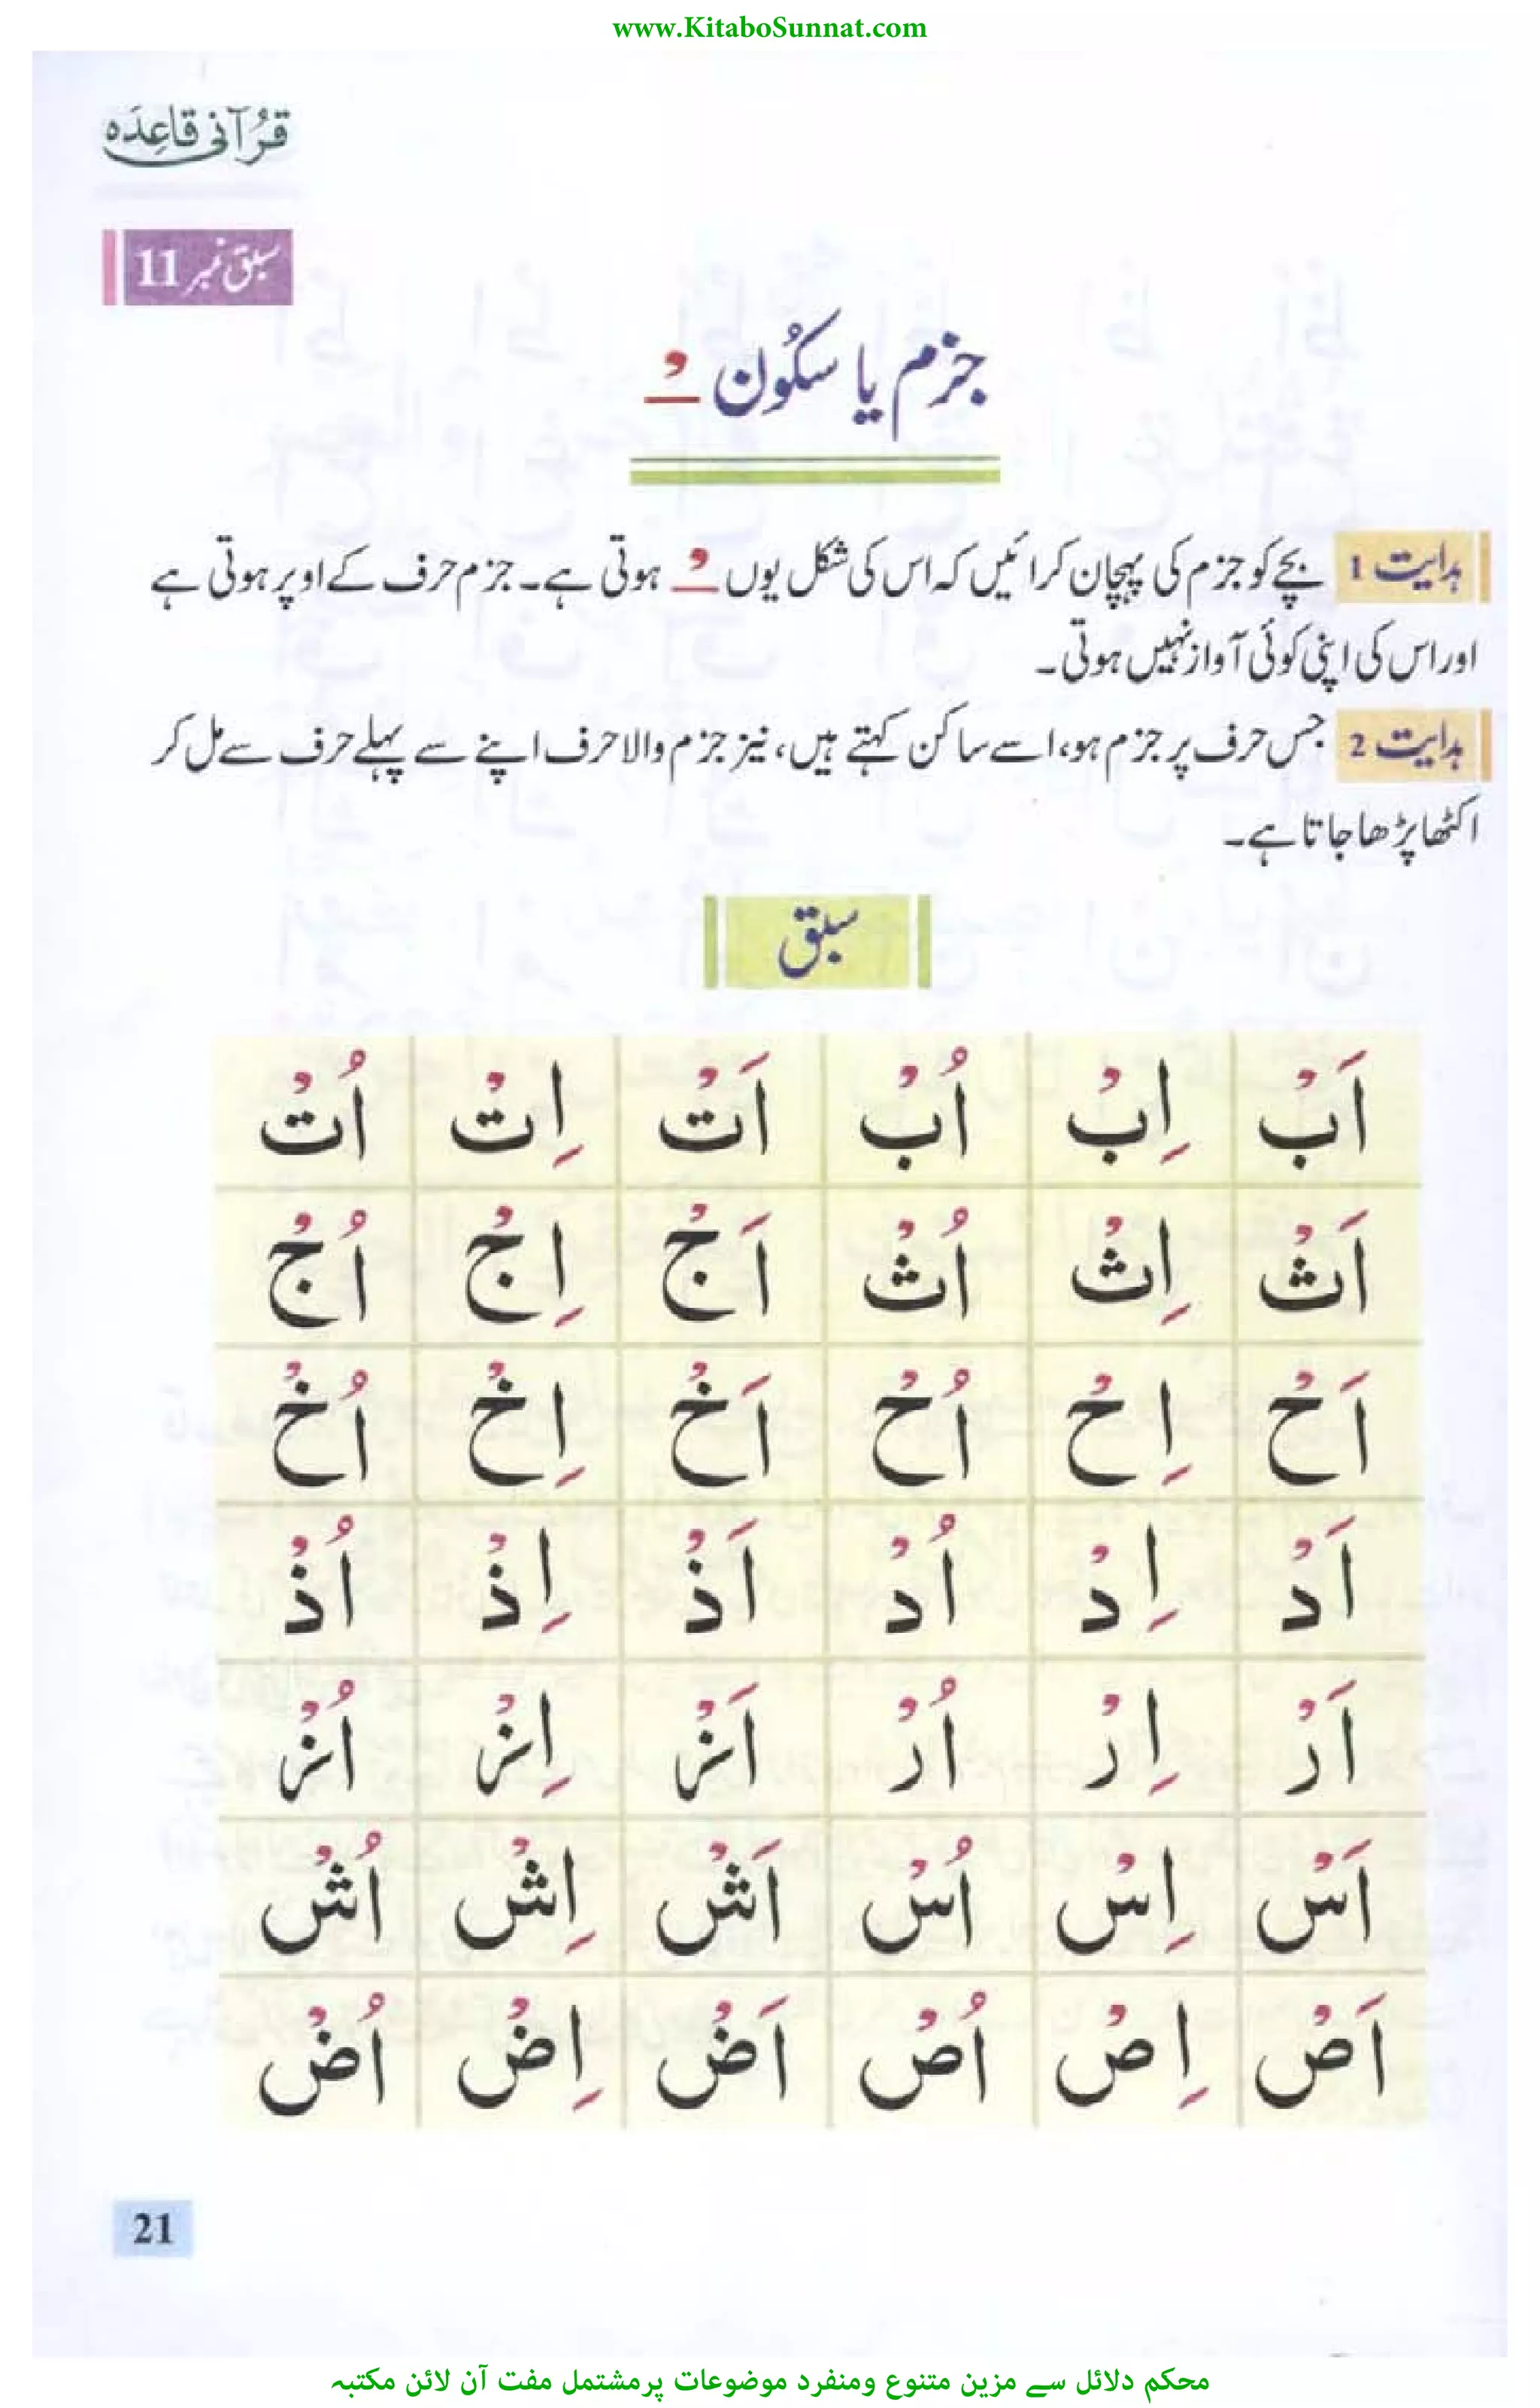 www.KitaboSunnat.com
قُرآنی قاعِدَہ
سبق نمبر 11
جزم یا سکُون ـْ
ہدایت 1 بچے کو جزم کی پہچان کرائیں کہ اس کی شکل یوں ـْ ہوتی ہے۔ جزم حرف کے اوپر ہوتی ہے
اور اس کی اپنی کوئی آواز نہیں ہوتی۔
ہدایت 2 جس حرف پر جزم ہو، اسے ساکن کہتے ہیں، نیز جزم والا حرف اپنے سے پہلے حرف سے مل کر
اکٹھا پڑھا جاتا ہے۔
سبق
اَبْ اِبْ اُبْ اَتْ اِتْ اُتْ
اَثْ اِثْ اُثْ اَجْ اِجْ اُجْ
اَحْ اِحْ اُحْ اَخْ اِخْ اُخْ
اَدْ اِدْ اُدْ اَذْ اِذْ اُذْ
اَرْ اِرْ اُرْ اَزْ اِزْ اُزْ
اَسْ اِسْ اُسْ اَشْ اِشْ اُشْ
اَصْ اِصْ اُصْ اَضْ اِضْ اُضْ
21
محکم دلائل سے مزین متنوع ومنفرد موضوعات پرمشتمل مفت آن لائن مکتبہ